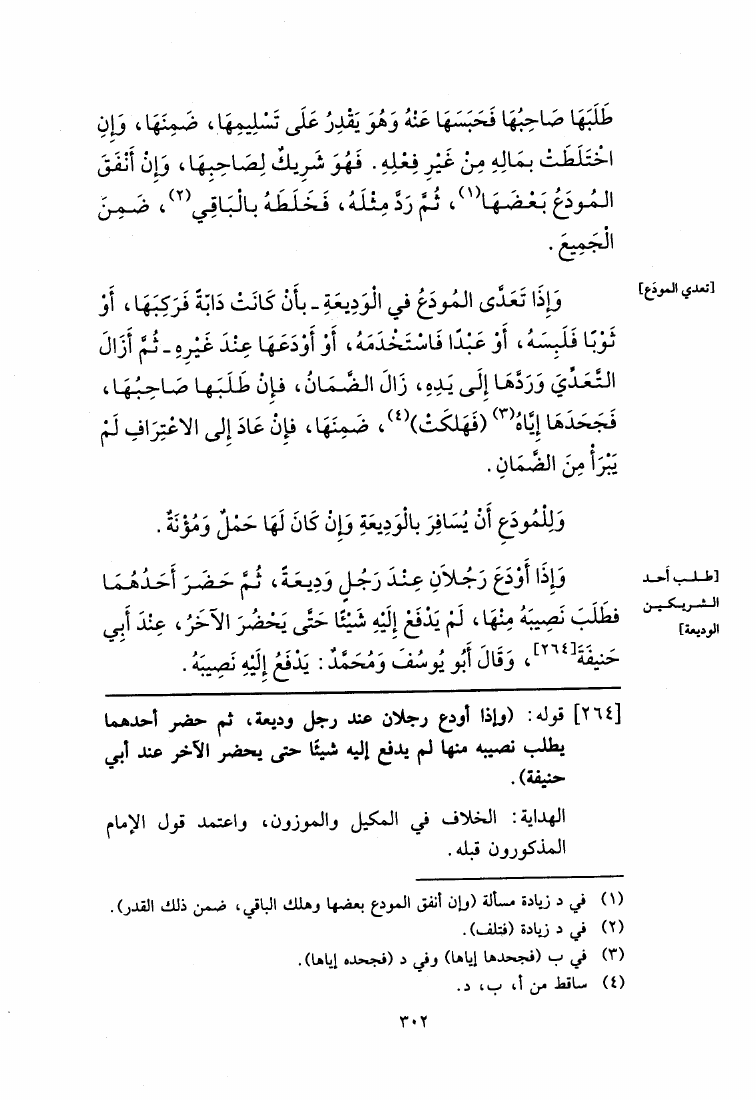 طَلَبَهَا صَاحِبُهَا فَحَبَسَهَا عَنْهُ وَهُوَ يَقْدِرُ عَلَى تَسْلِيمِهَا، ضَمِنَهَا، وَإِنِ
اخْتَلَطَتْ بِمَالِهِ مِنْ غَيْرِ فِعْلِهِ. فَهُوَ شَرِيكٌ لِصَاحِبِهَا، وَإِنْ أَنْفَقَ
المُودَعُ بَعْضَهَا(١)، ثُمَّ رَدَّ مِثْلَهُ، فَخَلَطَهُ بِالْبَاقِي(٢)، ضَمِنَ
الْجَمِيعَ.
[تعدي المودَع]
وَإِذَا تَعَدَّى المُودَعُ في الْوَدِيعَةِ ـ بأَنْ كَانَتْ دَابّةً فَرَكِبَهَا، أَوْ
ثَوْبًا فَلَبِسَهُ، أَوْ عَبْدًا فَاسْتَخْدَمَهُ، أَوْ أَوْدَعَهَا عِنْدَ غَيْرِهِ ـ ثُمَّ أَزَالَ
التَّعَدِّيَ وَرَدَّهَا إِلَى يَدِهِ، زَالَ الضَّمَانُ، فإِنْ طَلَبَها صَاحِبُهَا،
فَجَحَدَهَا إِيَّاهُ(٣) (فَهَلكَتْ)(٤)، ضَمِنَهَا، فإِنْ عَادَ إلى الاعْتِرَافِ لَمْ
يَبْرَأْ مِنَ الضَّمَانِ.
وَلِلْمُودَعِ أَنْ يُسَافِرَ بالْوَدِيعَةِ وَإِنْ كَانَ لَهَا حَمْلٌ وَمُؤْنَةٌ.
[طلب أحد
الشريكين
الوديعة]
وَإِذَا أَوْدَعَ رَجُلاَنِ عِنْدَ رَجُلٍ وَدِيعَةً، ثُمَّ حَضَرَ أَحَدُهُمَا
فطَلَبَ نَصِيبَهُ مِنْهَا، لَمْ يَدْفَعْ إِلَيْهِ شَيْئًا حَتَّى يَحْضُرَ الآخَرُ، عِنْدَ أبي
حَنِيفَةَ[٢٦٤]، وَقَالَ أَبُو يُوسُفَ وَمُحَمَّدٌ: يَدْفَعُ إِلَيْهِ نَصِيبَهُ.
[٢٦٤] قوله: (وإذا أودع رجلان عند رجل وديعة، ثم حضر أحدهما
يطلب نصيبه منها لم يدفع إليه شيئًا حتى يحضر الآخر عند أبي
حنيفة).
الهداية: الخلاف في المكيل والموزون، واعتمد قول الإمام
المذكورون قبله.
(١) في د زيادة مسألة (وإن أنفق المودع بعضها وهلك الباقي، ضمن ذلك القدر).
(٢) في د زيادة (فتلف).
(٣) في ب (فجحدها إياها) وفي د (فجحده إياها).
(٤) ساقط من أ، ب، د.
٣٠٢